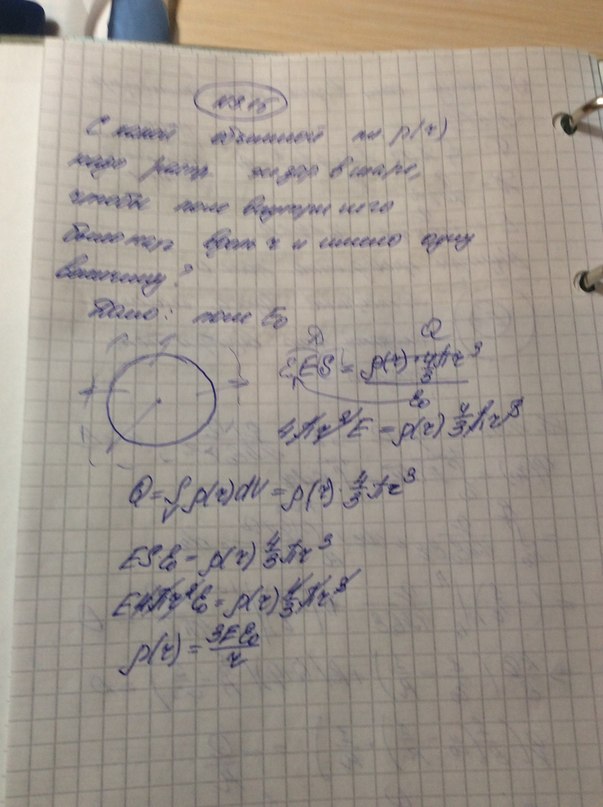 С какой объемной пл ρ(r)
надо расп. заряд в шаре,
чтобы поле внутри него
было нап вдоль r и имело одну
величину?
Дано: поле E₀
Д Q
ES = ρ(r)·4/3πr³
ε₀
4πr²E = ρ(r) 4/3πr³
Q = ∫ρ(r)dV = ρ(r)·4/3πr³
ESε₀ = ρ(r) 4/3πr³
E4πr²ε₀ = ρ(r) 4/3πr³
ρ(r) = 3Eε₀/r